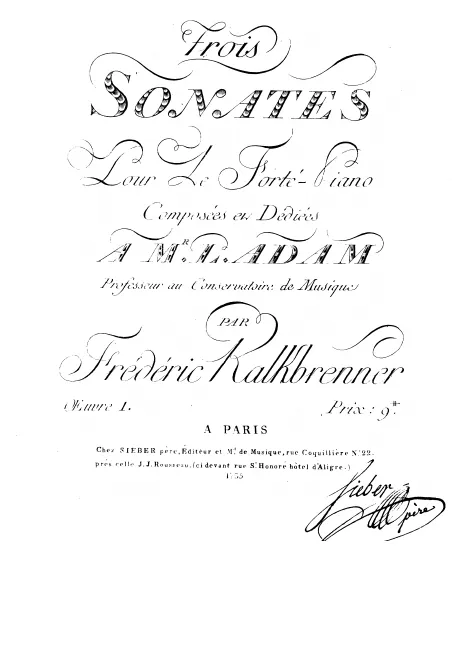 Trois
SONATES
Pour Le Forté-Piano
Composées et Dédiées
A Mr. L. ADAM
Professeur au Conservatoire de Musique
PAR
Frédéric Kalkbrenner
Œuvre I. Prix: 9#
A PARIS
Chez SIEBER père, Editeur et Md. de Musique, rue Coquillière No. 22.
près celle J.J. Rousseau. (ci devant rue St. Honoré hôtel d'Aligre.)
Sieber
père